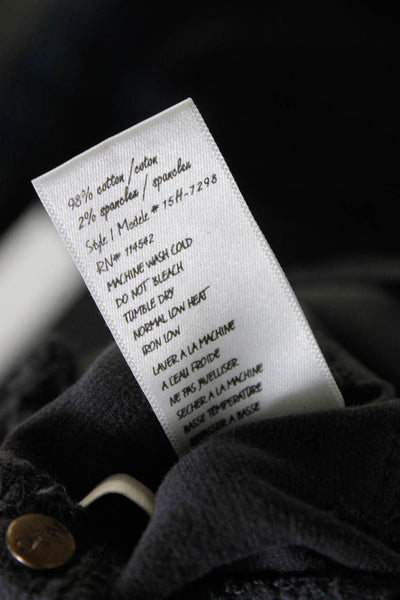 98% cotton/coton
2% spandex/spandex
Style/Modele # 15H-7298
RN# 114542
MACHINE WASH COLD
DO NOT BLEACH
TUMBLE DRY
NORMAL LOW HEAT
IRON LOW
LAVER A LA MACHINE
A L'EAU FROIDE
NE PAS JAVELLISER
SECHER A LA MACHINE
BASSE TEMPERATURE
REPASSER A BASSE